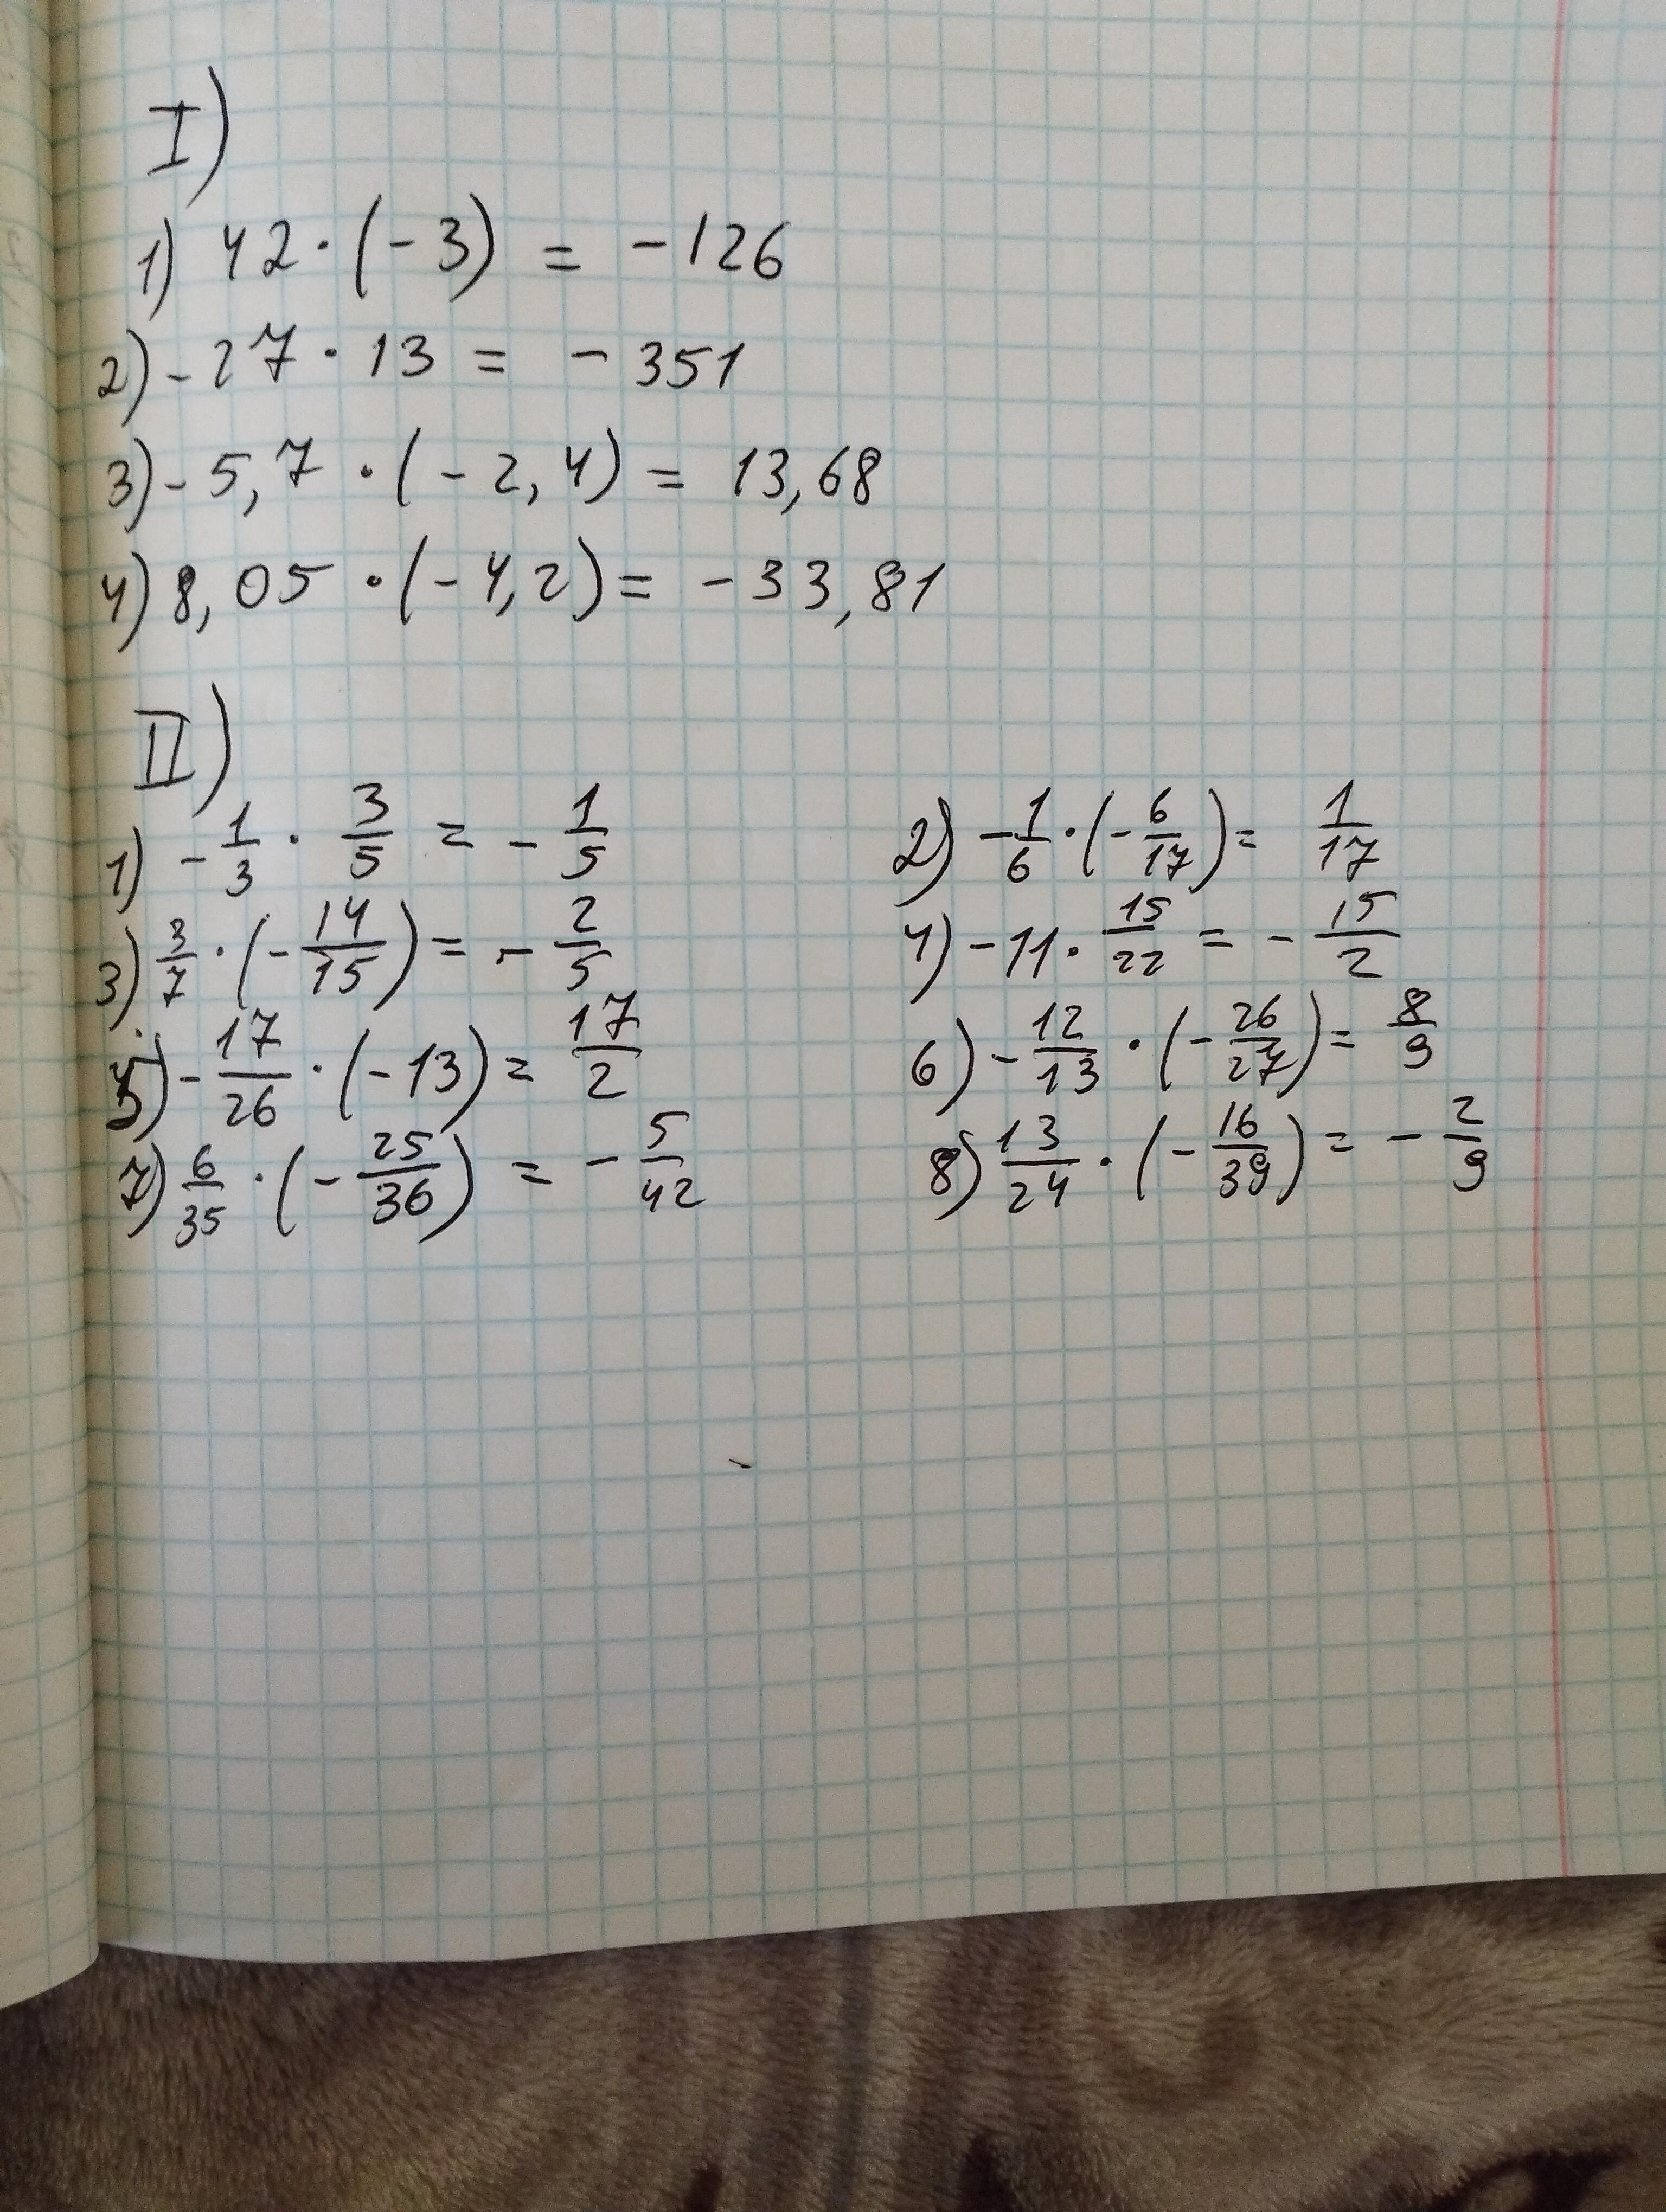 I)
1) 42 · (-3) = -126
2) -27 · 13 = -351
3) -5,7 · (-2,4) = 13,68
4) 8,05 · (-4,2) = -33,81
II)
1) -1/3 · 3/5 = -1/5 2) -1/6 · (-6/17) = 1/17
3) 3/7 · (-14/15) = -2/5 4) -11 · 15/22 = -15/2
5) -17/26 · (-13) = 17/2 6) -12/13 · (-26/27) = 8/9
7) 6/35 · (-25/36) = -5/42 8) 13/24 · (-16/39) = -2/9